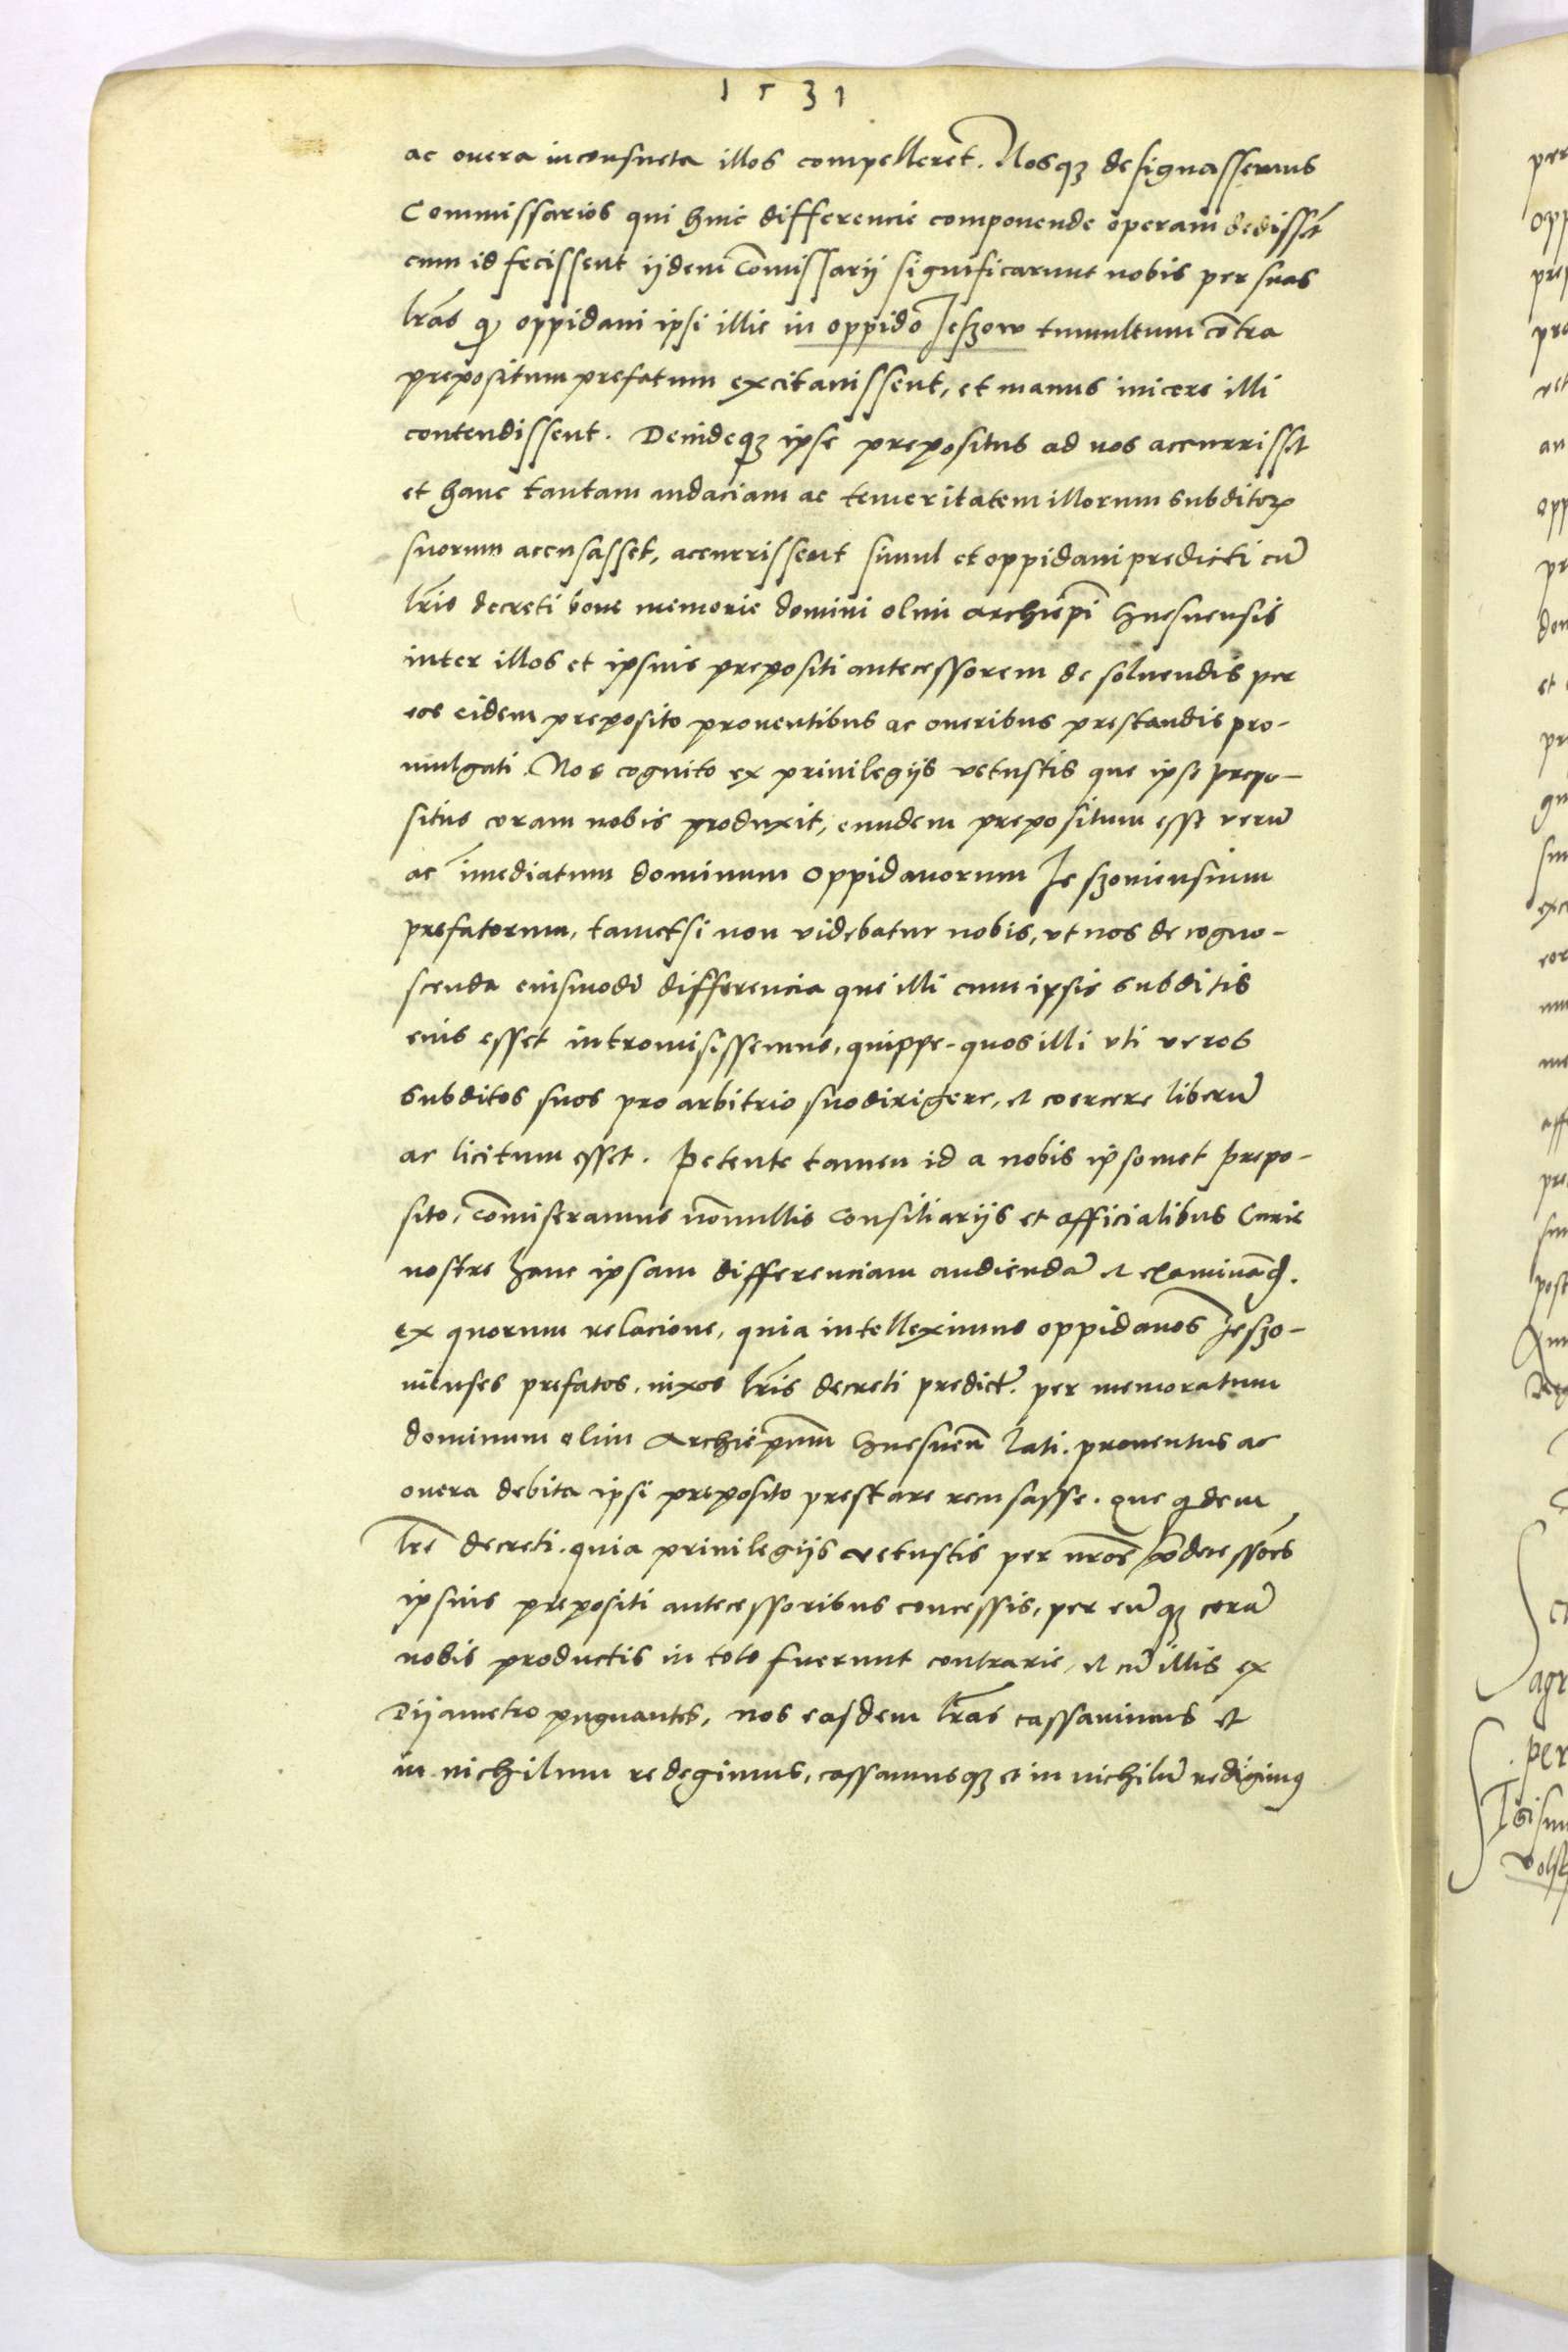 1531
ac onera inconsueta illos compelleret. Nosq designassemus
Commissarios qui huic differencie componende operam dedisset
cum id fecissent ijdem Comissarij significarunt nobis per suas
lras q oppidani ipsi illic in oppido Jeszow tumultum contra
prepositum prefatum excitavissent, et manus inicere illi
contendissent. Deindeq ipse prepositus ad nos accurrisset
et hanc tantam audaciam ac temeritatem illorum subditor
suorum accusasset, accurrissent simul et oppidani predicti cu
lris decreti bone memorie domini olim archiepi Gnesnensis
inter illos et ipsius prepositi antecessorem de solvendis per
eos eidem preposito proventibus ac oneribus prestandis pro-
mulgati. Nos cognito ex privilegijs vetustis que ipse prepo-
situs coram nobis produxit, eundem prepositum esse veru
ac imediatum dominum oppidanorum Jeszoviensium
prefatorum, tametsi non videbatur nobis, vt nos de cogno-
scenda eiusmodi differencia que illi cum ipsis subditis
eius esset intromisissemus, quippe quos illi vti veros
subditos suos pro arbitrio suo dirigere, et coercere liberu
ac licitum esset. Petente tamen id a nobis ipsomet prepo-
sito, comiseramus nonullis consiliarijs et officialibus Curie
nostre hanc ipsam differenciam audienda et examinand.
ex quorum relacione, quia intelleximus oppidanos Jeszo-
vienses prefatos, nixos lris decreti predict. per memoratum
dominum olim Archiepum Gnesnen lati. proventus ac
onera debita ipsi preposito prestare recusasse. que qdem
lre decreti. quia privilegijs vetustis per nros predecessores
ipsius prepositi antecessoribus concessis, per eu q cora
nobis productis in toto fuerunt contrarie, et cu illis ex
Dijametro pugnantes, nos easdem lras cassavimus et
in nichilum redegimus, cassamusq et in nichilu redigimus